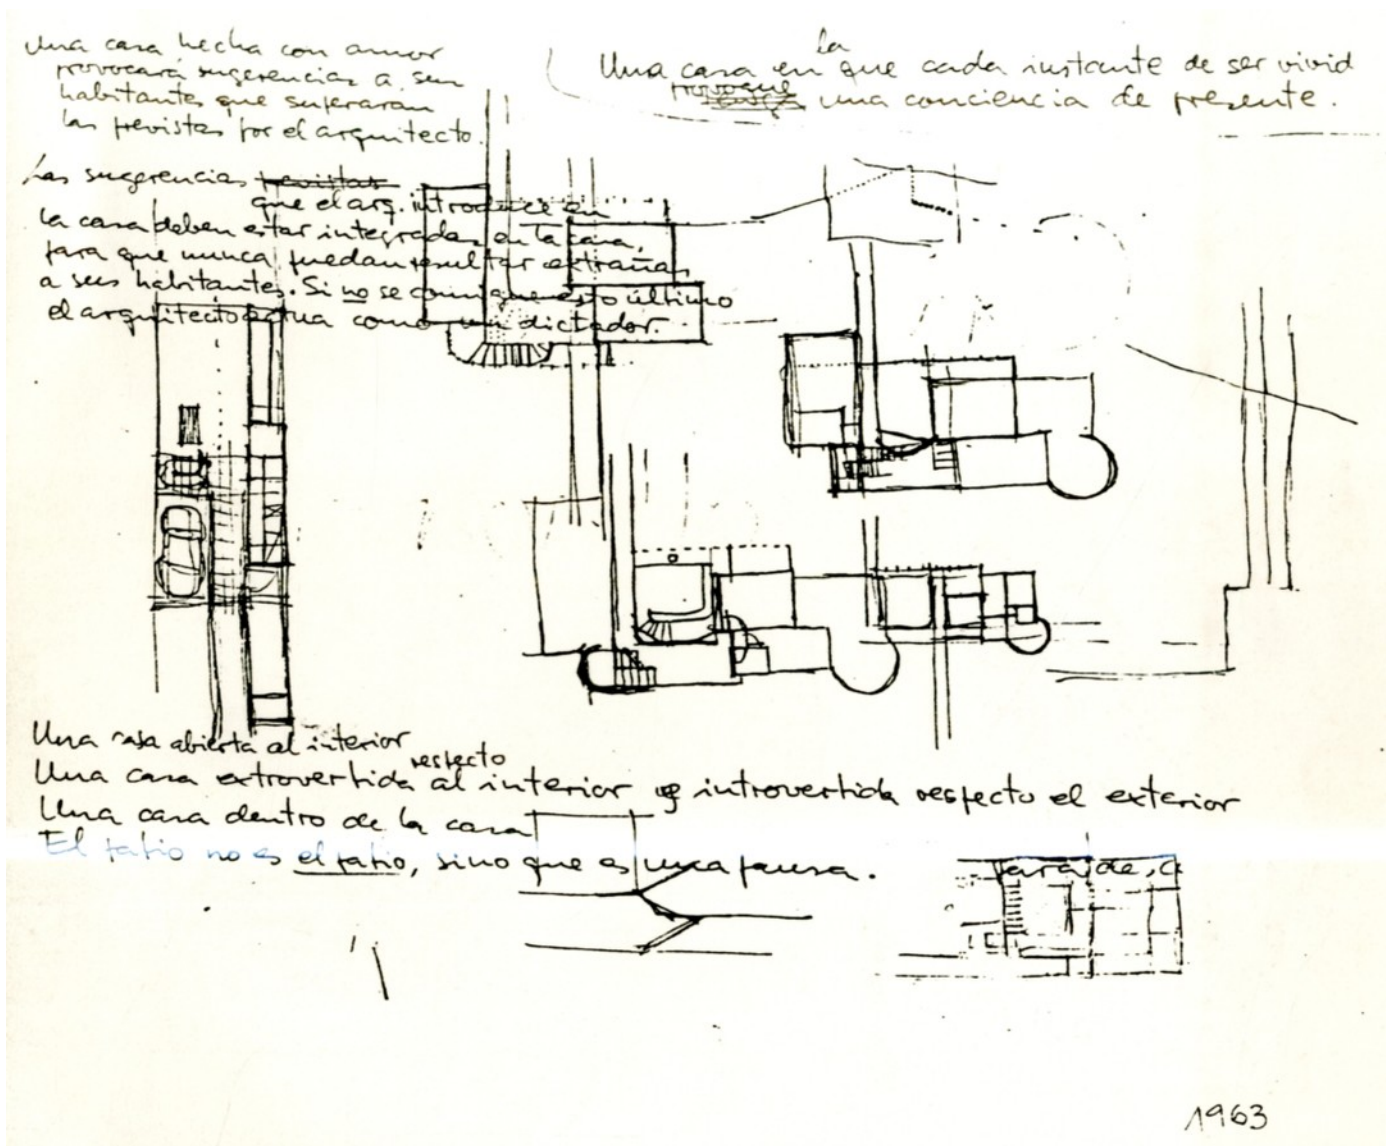 Una casa hecha con amor
provocará sugerencias a sus
habitantes que superaran
las previstas por el arquitecto.
la
Una casa en que cada instante de ser vivid
provoque
una conciencia de presente.
Las sugerencias previstas
que el arq. introduce en
la casa deben estar integradas en la casa,
para que nunca puedan resultar extrañas
a sus habitantes. Si no se consigue esto último
el arquitecto actua como un dictador.
Una casa abierta al interior
respecto
Una casa extrovertida al interior e introvertida respecto el exterior
Una casa dentro de la casa
El patio no es el patio, sino que es una pausa.
1963